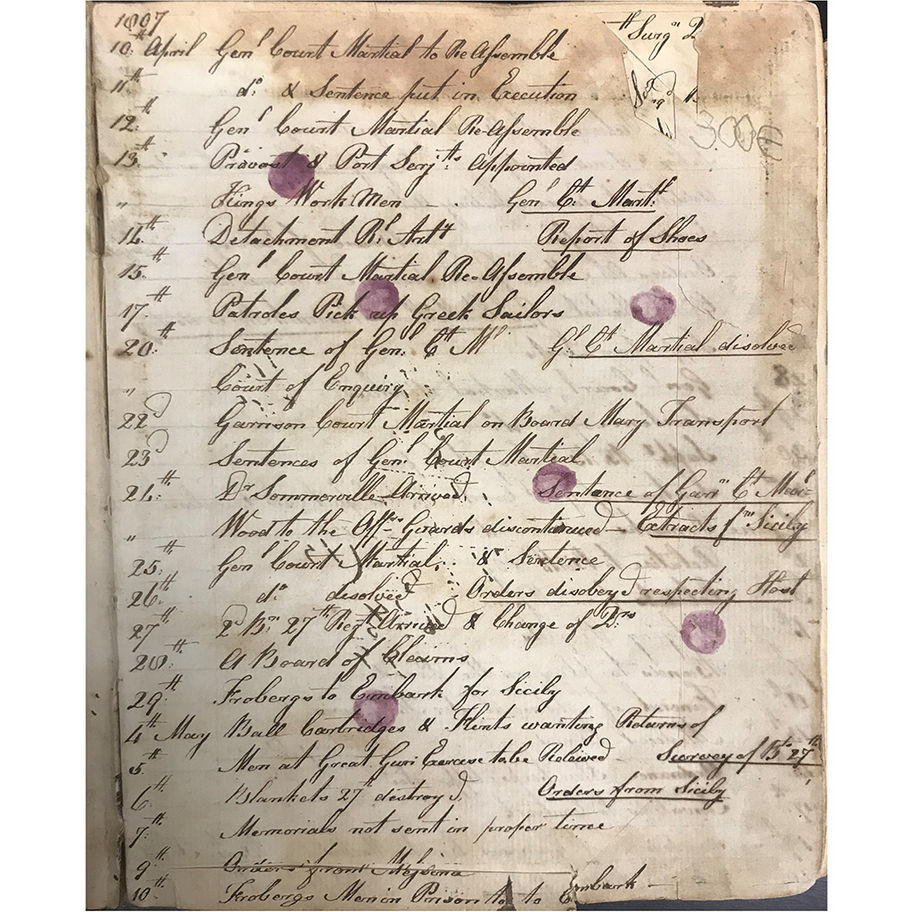 1807
10th April Genl Court Martial to Re Assemble
11th do & Sentence put in Execution
12th Genl Court Martial Re-Assemble
13th Provost & Port Serjts Appointed
" Kings Work Men Genl Ct Martl
14th Detachment Rl Arty Report of Shoes
15th Genl Court Martial Re-Assemble
17th Patroles Pick up Greek Sailors
20th Sentence of Genl Ct Ml Gl Ct Martial disolved
" Court of Enquiry
22d Garrison Court Martial on Board Mary Transport
23d Sentences of Genl Court Martial
24th Dr Sommerville Arrived Sentence of Garn Ct Mar
" Wood to the Offrs Guards discontinued - Extracts fm Sicily
25th Genl Court Martial & Sentence
26th do disolved Orders disobeyd respecting
27th 2d Bn 27th Regt Arrived & Change of Drs
28th A Board of Clearns
29th Frobergs to Embark for Sicily
4th May Ball Cartridges & Flints wanting Returns of
5th Men at Great Gun Exercise to be Relieved - Survey of 27th
6th Blankets 27th destroyd Orders from Sicily
7th Memorials not sent in proper time
9th Orders from Messina
10th Frobergs Men in Prison to Embark
th Surgn 2
300